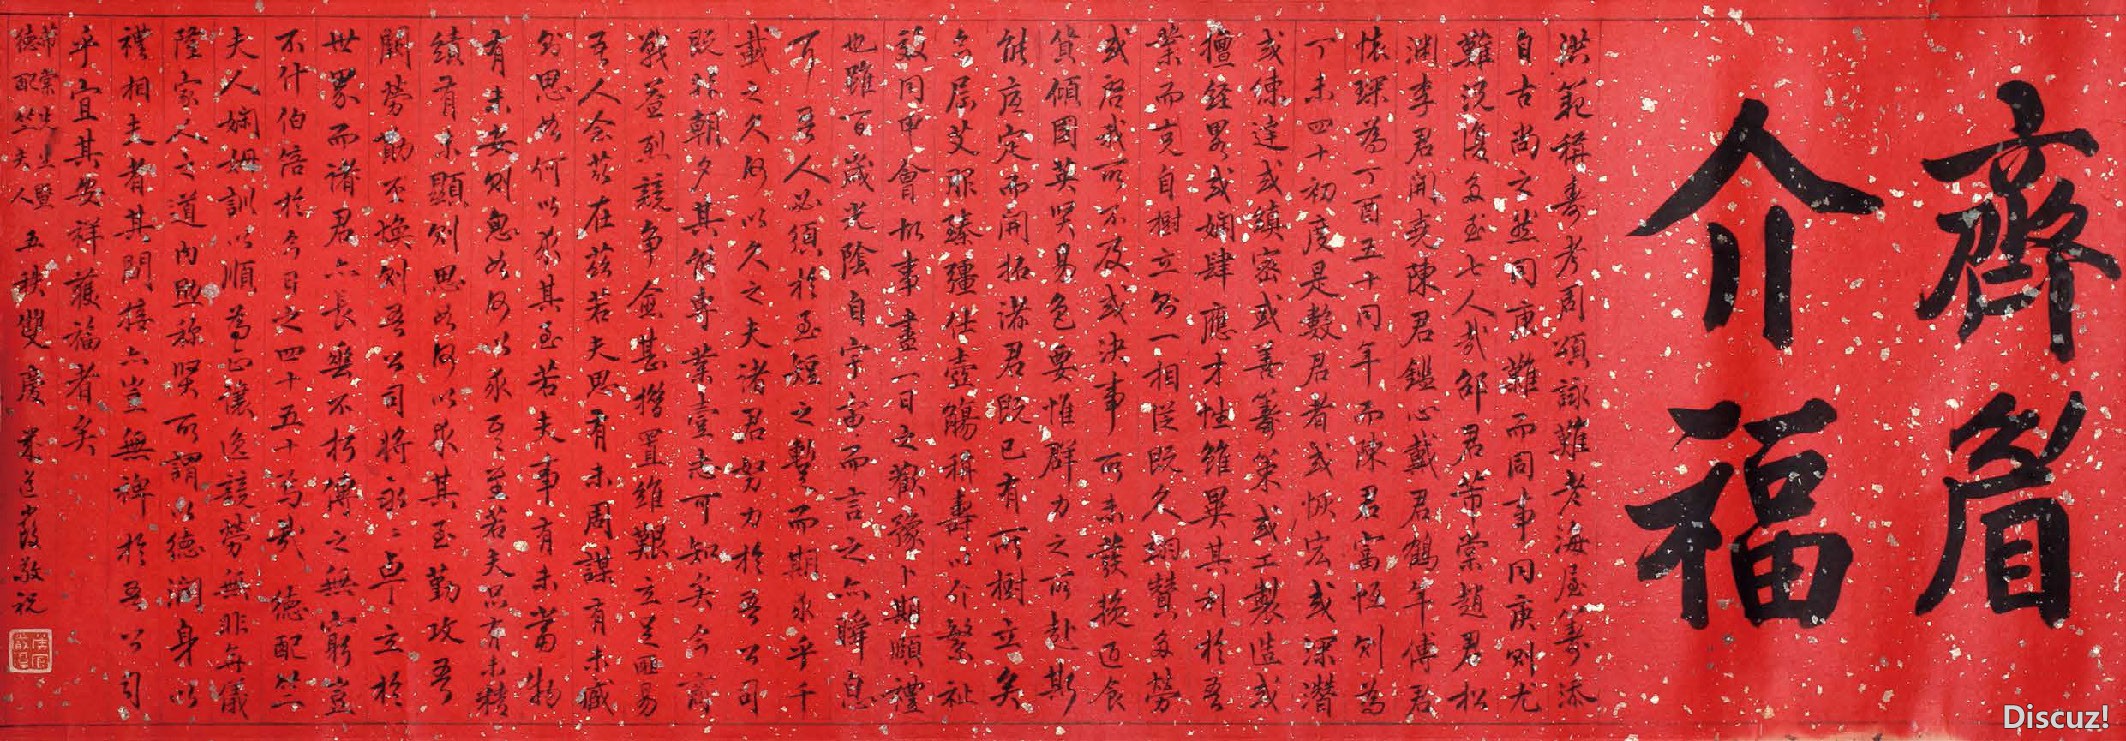 齊眉
介福
洪範稱壽考周頌詠難老海屋籌添
自古尚之然同庚難而同事同庚則尤
難況復多至七人哉邵君芾棠趙君松
淵李君開堯陳君鑑心戴君鶴年傅君
懷琛為丁酉五十同年而陳君富恆則為
丁未四十初度是數君者或恢宏或深潛
或練達或縝密或善籌策或工製造或
擅經界或嫻肆應才性雖異其利於吾
業而克自樹立則一相從既久翊贊多勞
或啓我所不及或決事所未發掞迺食
貨傾國英賢易色要惟群力之所赴斯
能底定而開拓諸君既已有所樹立矣
年屆艾服臻彊仕壺觴稱壽以介繁祉
設同甲會故事盡一日之歡豫卜期頤禮
也雖百歲光陰自宇宙而言之亦瞬息
耳吾人必須於至短之暫而期永乎千
載之久何以久之夫諸君努力於吾公司
既非朝夕其能專業壹志可知矣今商
戰益烈競爭愈甚撐置維艱立足匪易
吾人会萃在茲若夫思有未周謀有未臧
則思如何以求其至若夫事有未當物
有未安則思如何以求至至若夫品有未精
績有未顯則思如何以求其至勤攻吾
闕勞勩不渙則吾公司將永永卓立於
世界而諸君亦長垂不朽傳之無窮豈
不什伯倍於今日之四十五十為哉德配竺
夫人嫻姆訓以順為正讓逸競勞無非無儀
隆家人之道內助称賢所謂以德潤身以
禮相夫者其間接亦豈無裨於吾公司
乎宜其安祥護福者矣
芾棠先生暨
德配竺夫人 五秩雙慶 敬祝
Discuz!